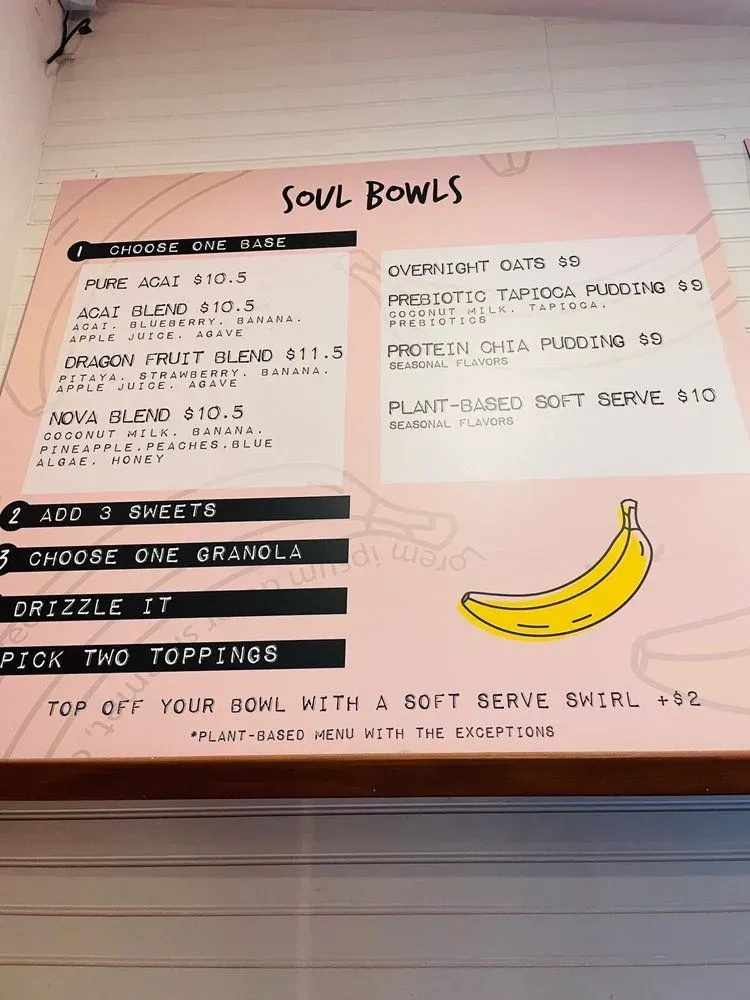 SOUL BOWLS
1 CHOOSE ONE BASE
PURE ACAI $10.5
ACAI BLEND $10.5
ACAI. BLUEBERRY. BANANA.
APPLE JUICE. AGAVE
DRAGON FRUIT BLEND $11.5
PITAYA. STRAWBERRY. BANANA.
APPLE JUICE. AGAVE
NOVA BLEND $10.5
COCONUT MILK. BANANA.
PINEAPPLE.PEACHES.BLUE
ALGAE. HONEY
OVERNIGHT OATS $9
PREBIOTIC TAPIOCA PUDDING $9
COCONUT MILK. TAPIOCA.
PREBIOTICS
PROTEIN CHIA PUDDING $9
SEASONAL FLAVORS
PLANT-BASED SOFT SERVE $10
SEASONAL FLAVORS
2 ADD 3 SWEETS
3 CHOOSE ONE GRANOLA
DRIZZLE IT
PICK TWO TOPPINGS
Lorem ipsum
TOP OFF YOUR BOWL WITH A SOFT SERVE SWIRL +$2
*PLANT-BASED MENU WITH THE EXCEPTIONS